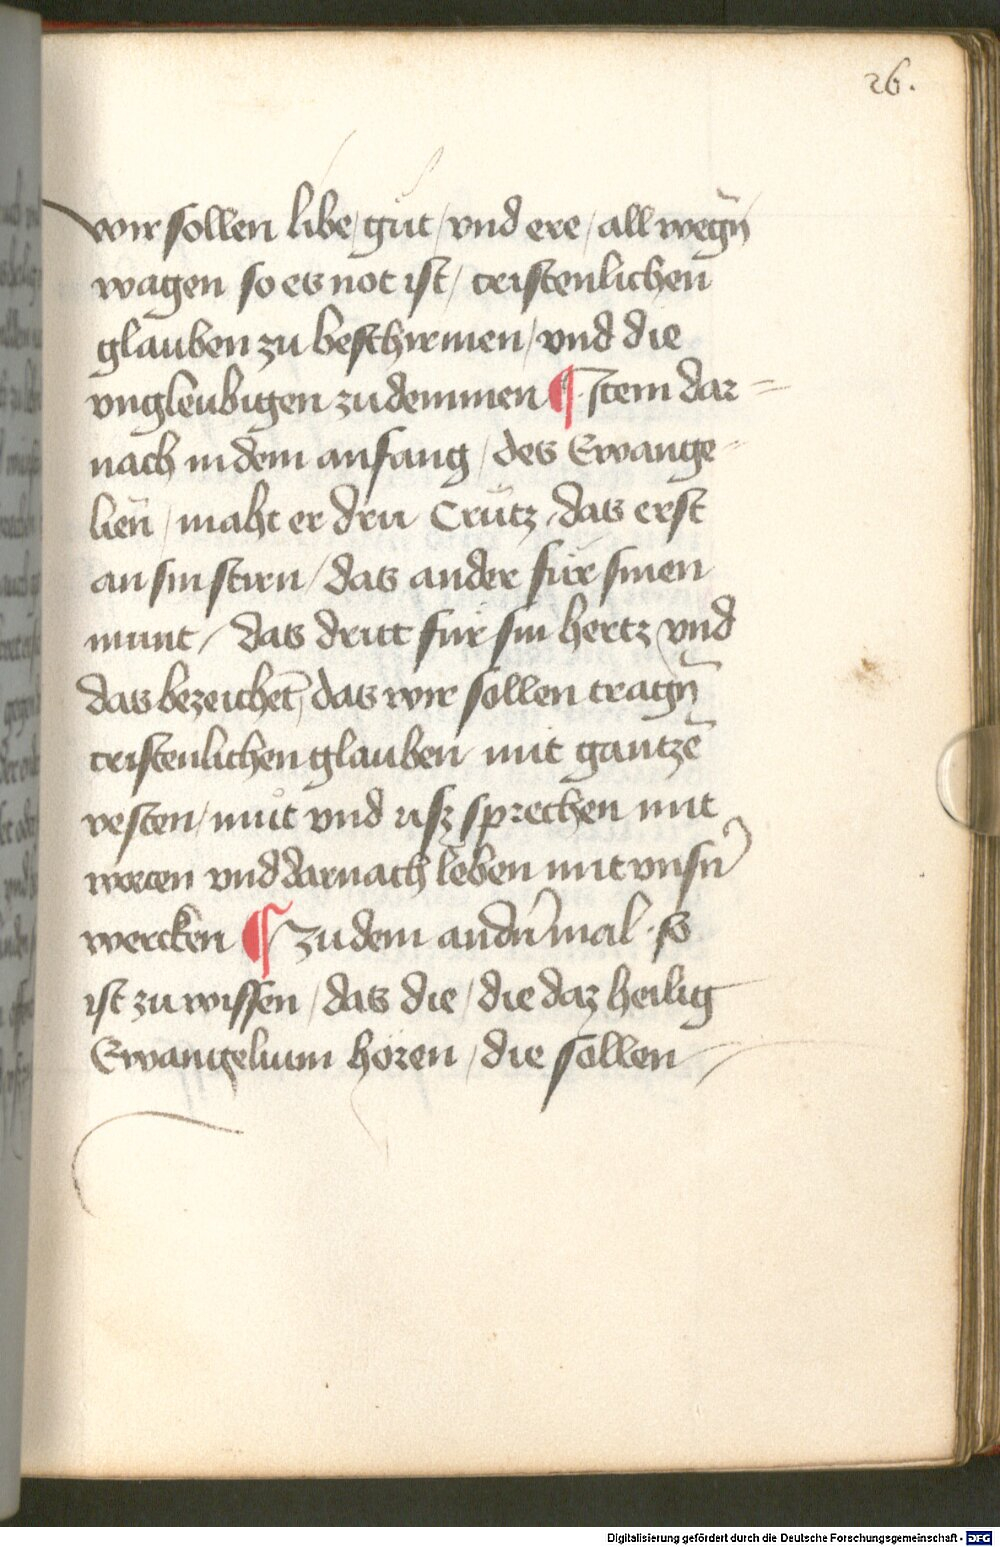 26.
wir sollen libe / gůt / vnd ere / all wegn̄
wagen so es not ist / cristenlichen
glauben zu beschirmen / vnd die
vngleubigen zu demmen ¶ Item dar=
nach in dem anfang / des Ewange=
lien / maht er dru Crütz / das erst
an sin stirn / das ander für sinen
munt / das dritt für sin hertz vnd
das bezeichet̄ / das wir sollen tragn̄
cristenlichen glauben mit gantzē
vesten / můt vnd usz sprechen mit
worten vnd darnach leben mit vnsn̄
wercken ¶ zu dem andn̄ mal · so
ist zu wissen / das die / die daz heilig
Ewangelium hören / die sollen
Digitalisierung gefördert durch die Deutsche Forschungsgemeinschaft - DFG